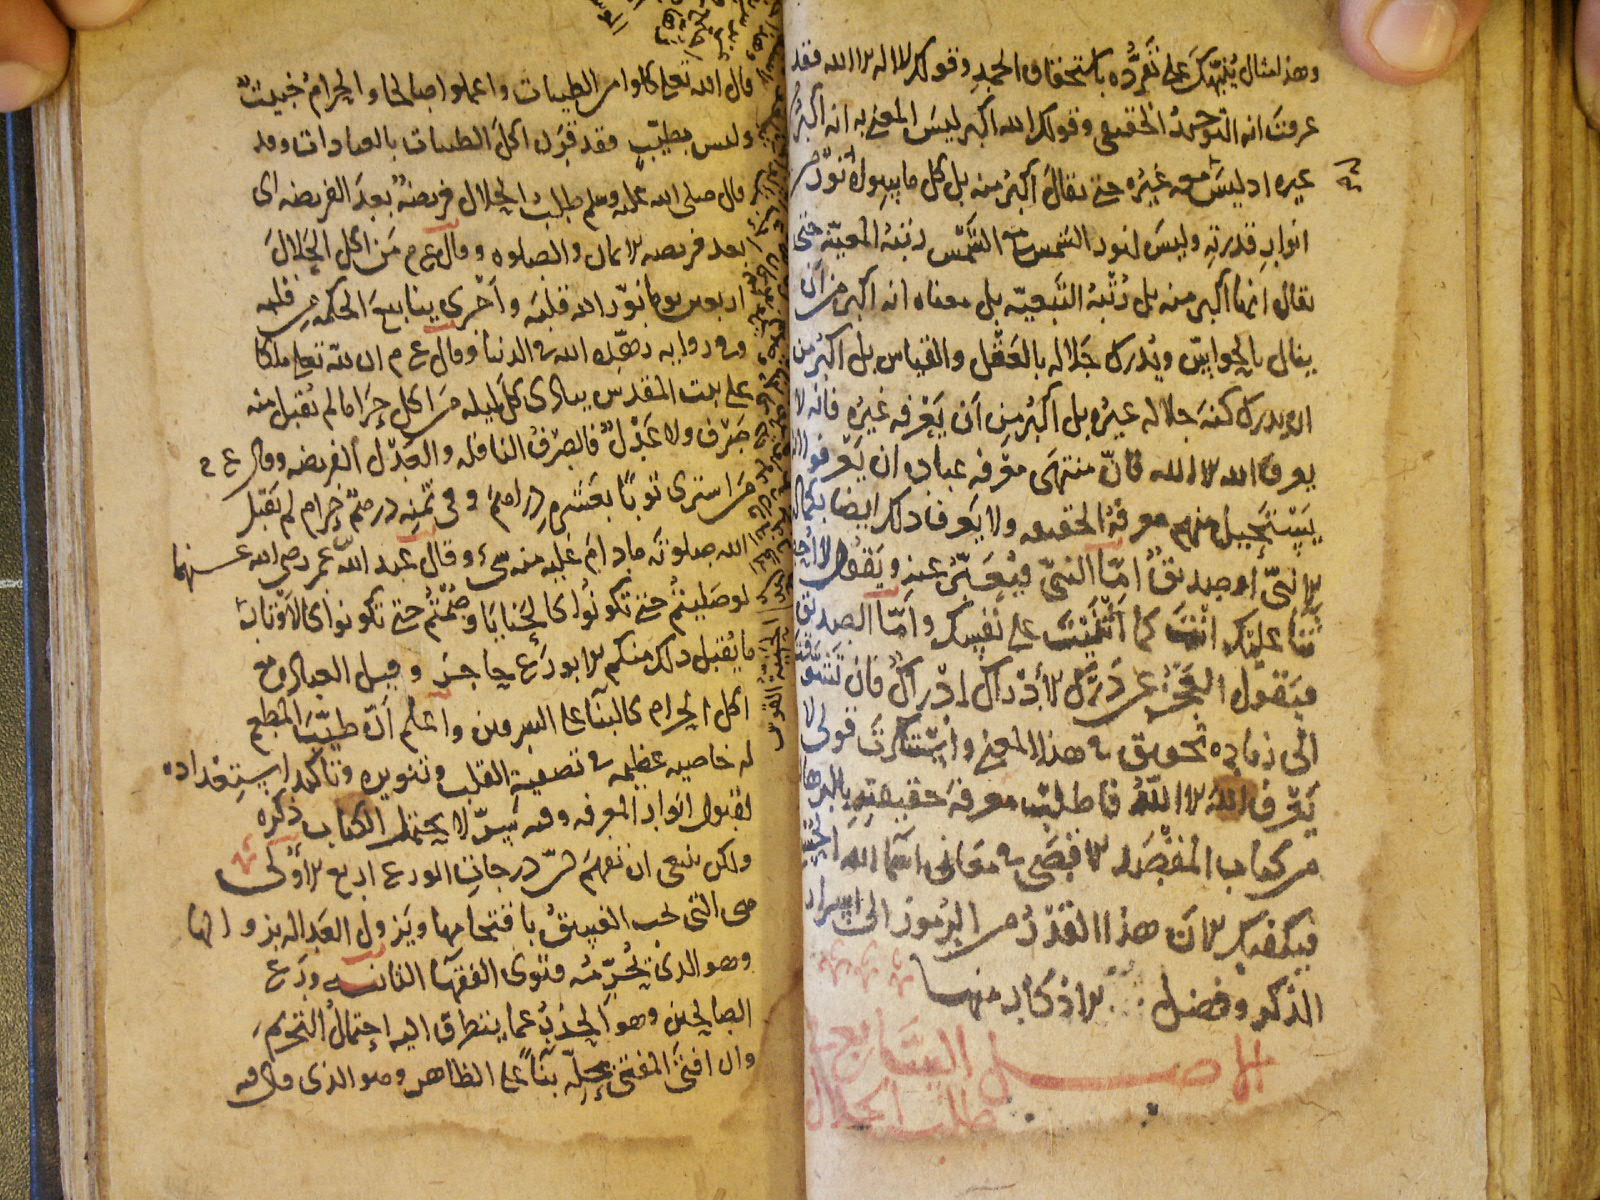 وهذا مثال ينبهك على تفرده باستحقاق الحمد وقولك لا اله الا الله فقد
عرفت انه التوحيد الحقيقي وقولك الله اكبر ليس المعنى به انه اكبر من
غيره اذ ليس معه غيره حتى يقال اكبر منه بل كل ما سواه نور من
انوار قدرته وليس لنور الشمس مع الشمس رتبة المعية حتى
يقال انها اكبر منه بل رتبة التبعية بل معناه انه اكبر من ان
ينال بالحواس ويدرك جلاله بالعقل والقياس بل اكبر من
ان يدرك كنه جلاله غيره بل اكبر من ان يعرفه غيره فانه لا
يعرف الله الا الله فان منتهى معرفة عباده ان يعرفوا انه
يستحيل منهم معرفة الحقيقه ولا يعرف ذلك ايضا بكماله
الا نبي او صديق اما النبي فيعبر عنه ويقول لا احصي
ثنا عليك انت كما اثنيت على نفسك واما الصديق
فيقول العجز عن درك الادراك ادراك فان تشوقت
الى زياده تحقيق في هذا المعنى واستنكرت قولي لا
يعرف الله الا الله فاطلب معرفة حقيقته بالبرهان
من كتاب المقصد الاقصى في معاني اسما الله الحسنى
فيكفيك الان هذا القدر من الرموز الى اسرار
الذكر وفضل الاذكار منها
الاصل السابع في
طلب الحلال
قال الله تعلى كلوا من الطيبات واعملوا صالحا والحرام خبيث
وليس بطيب فقد قرن اكل الطيبات بالعبادات وقد
قال صلى الله عليه وسلم طلب الحلال فريضة بعد الفريضه اى
بعد فريضه الايمان والصلوه وقال ع م من اكل الحلال
اربعين يوما نور الله قلبه واجرى ينابيع الحكمه من قلبه
وفي روايه زهده الله في الدنيا وقال ع م ان لله تعلى ملكا
على بيت المقدس ينادى كل ليله من اكل حراما لم يقبل منه
صرف ولا عدل فالصرف النافله والعدل الفريضه وقال ع م
من اشترى ثوبا بعشره دراهم وفي ثمنه درهم حرام لم يقبل
الله صلوته مادام عليه منه شيء وقال عبد الله بن عمر رضى الله عنهما
لو صليتم حتى تكونوا كالحنايا وصمتم حتى تكونوا كالاوتار
ما يقبل ذلك منكم الا بورع حاجز وقيل العباده مع
اكل الحرام كالبنا على السرقين واعلم ان طيب المطعم
له خاصيه عظيمه في تصفية القلب وتنويره وتاكيد استعداده
لقبول انوار المعرفه وفيه سر لا يحتمل الكتاب ذكره
ولكن ينبغى ان تفهم ان درجات الورع اربع الاولى
هى التى يجب الفسق باقتحامها ويزول العداله بزوالها
وهو الذى يحرمه فتوى الفقها الثانيه ورع
الصالحين وهو الحذر عما يتطرق اليه احتمال التحريم
وان افتى المفتى بحله بنا على الظاهر وهو الذى قال فيه